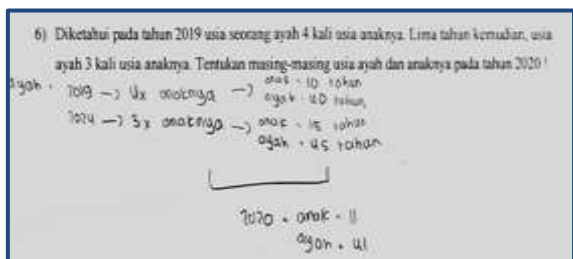 6) Diketahui pada tahun 2019 usia seorang ayah 4 kali usia anaknya. Lima tahun kemudian, usia
ayah 3 kali usia anaknya. Tentukan masing-masing usia ayah dan anaknya pada tahun 2020 !
Ayah • 2019 → 4x anaknya → anak • 10 tahun
ayah • 40 tahun
2024 → 3x anaknya → anak • 15 tahun
ayah • 45 tahun
2020 • anak • 11
ayah • 41